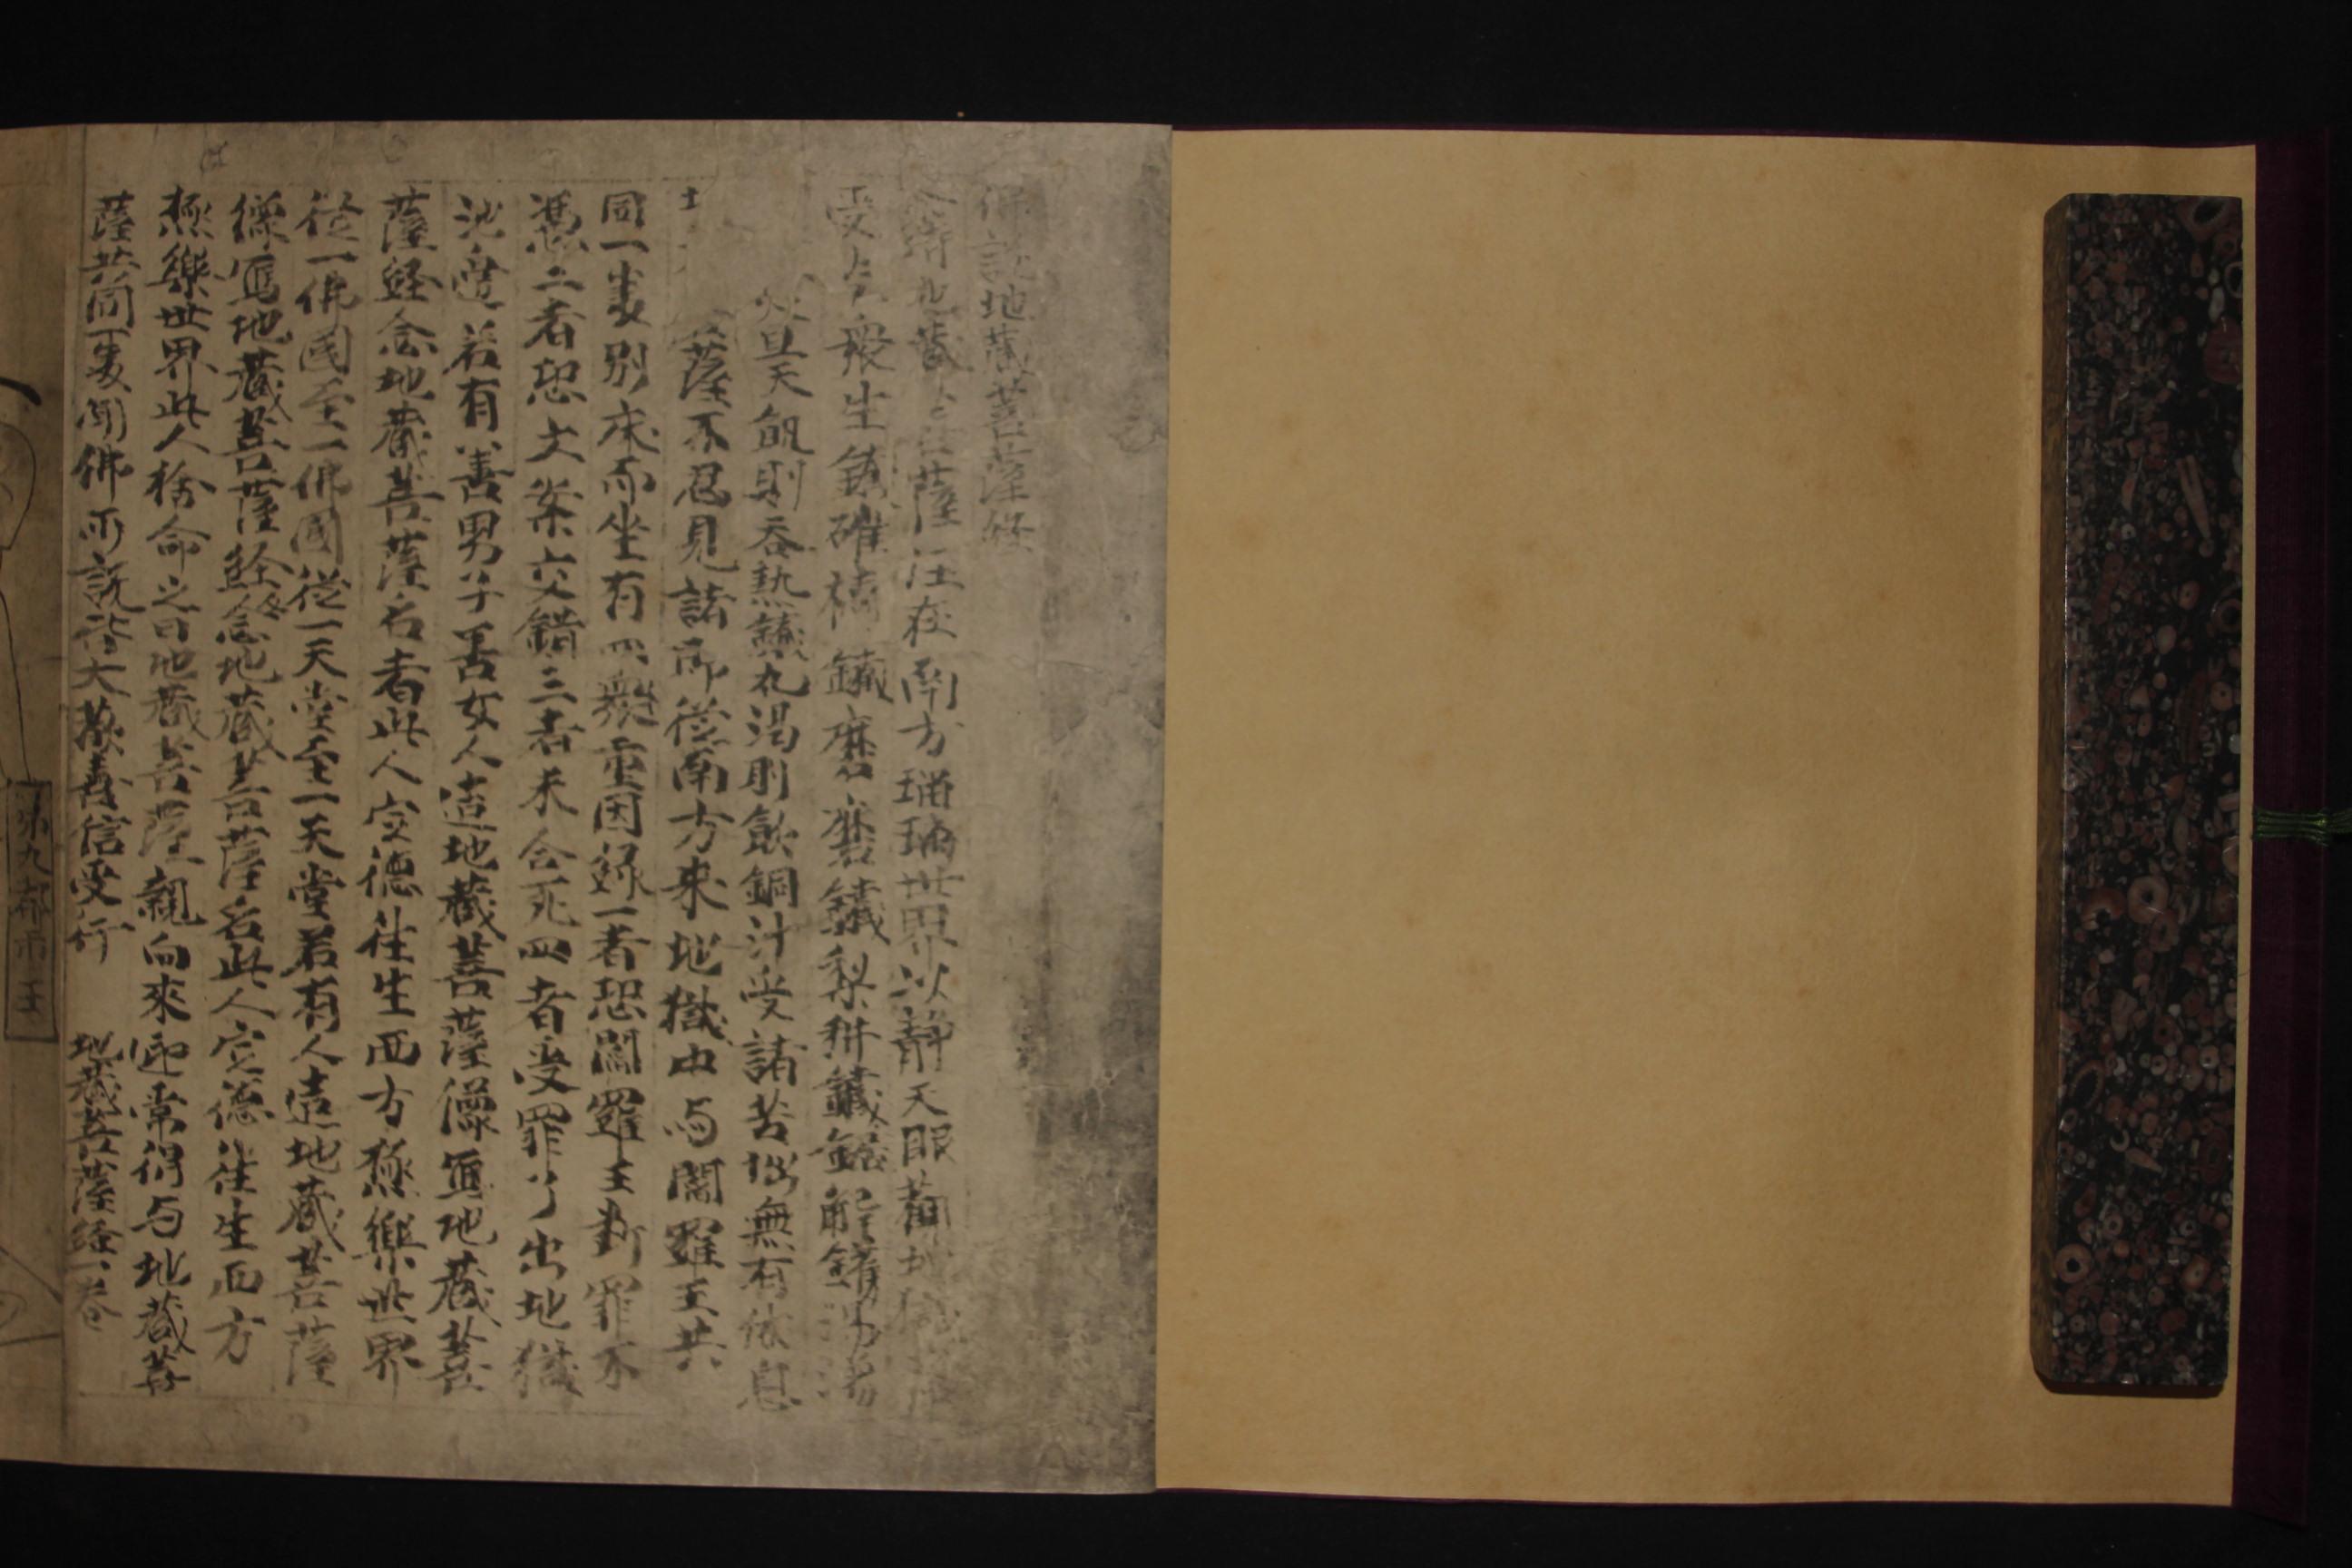 佛說地藏菩薩経
尒時地藏菩薩住在南方瑠璃世界以静天眼觀地獄
受苦衆生鐵碓擣鐵磨磨鐵犁耕鐵鋸解鑊湯湧
旦天飢則吞熱鐵丸渴則飲銅汁受諸苦惱無有休息
薩不忍見諸即從南方來地獄中与閻羅王共
同一䖏別床而坐有四衆重因緣一者恐閻羅王斷罪不
憑二者恐文案交錯三者未合死四者受罪了出地獄
池邊若有善男子善女人造地藏菩薩像寫地藏菩
薩経念地藏菩薩名者此人定德往生西方極樂世界
從一佛國至一佛國從一天堂至一天堂若有人造地藏菩薩
像寫地藏菩薩経念地藏菩薩名此人定德往生西方
極樂世界此人捨命之日地藏菩薩親向來迎常得与地藏菩
薩共同一䖏聞佛所說皆大歡喜信受行 地藏菩薩経一卷
第九都市王